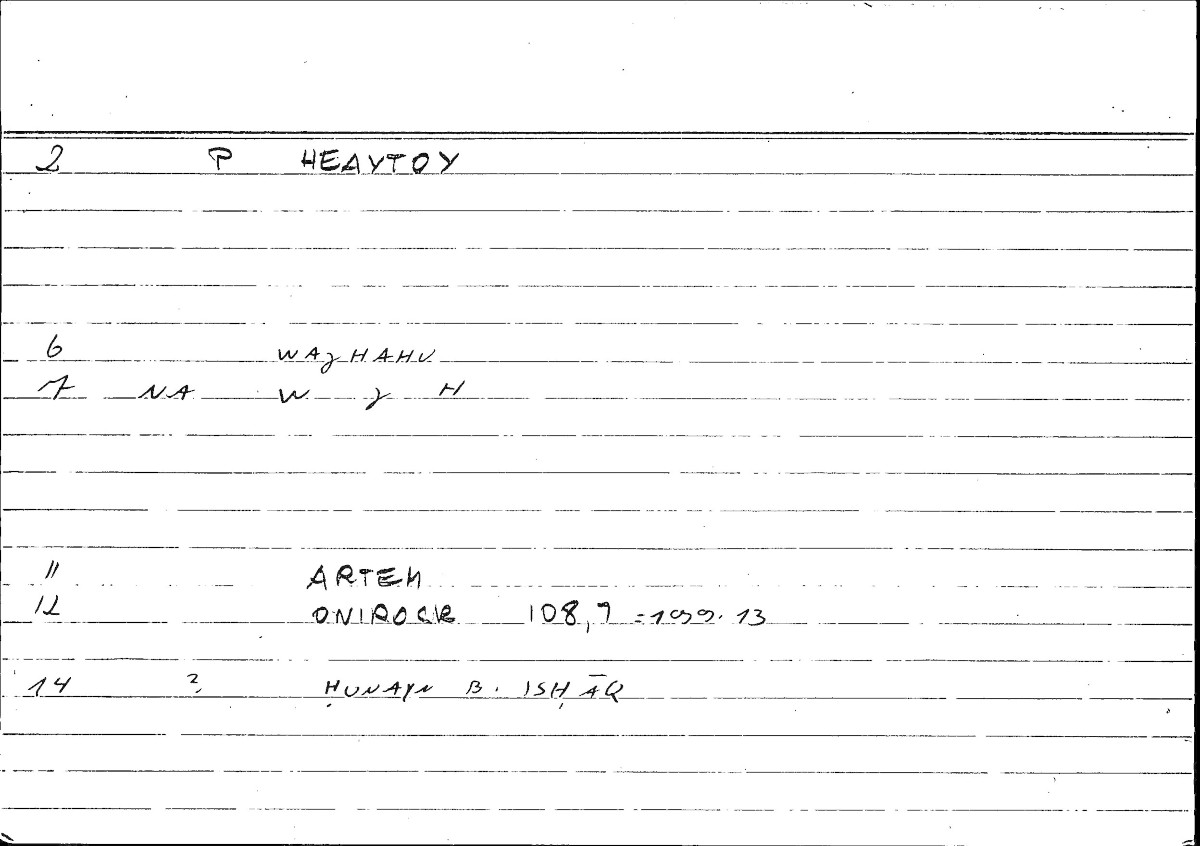 2 P ΗΕΑΥΤΟΥ
6 WAJHAHU
7 NA W J H
11 ARTEM
12 ONIROCR 108,7 = 199.13
14 ? ḤUNAYN B. ISḤĀQ